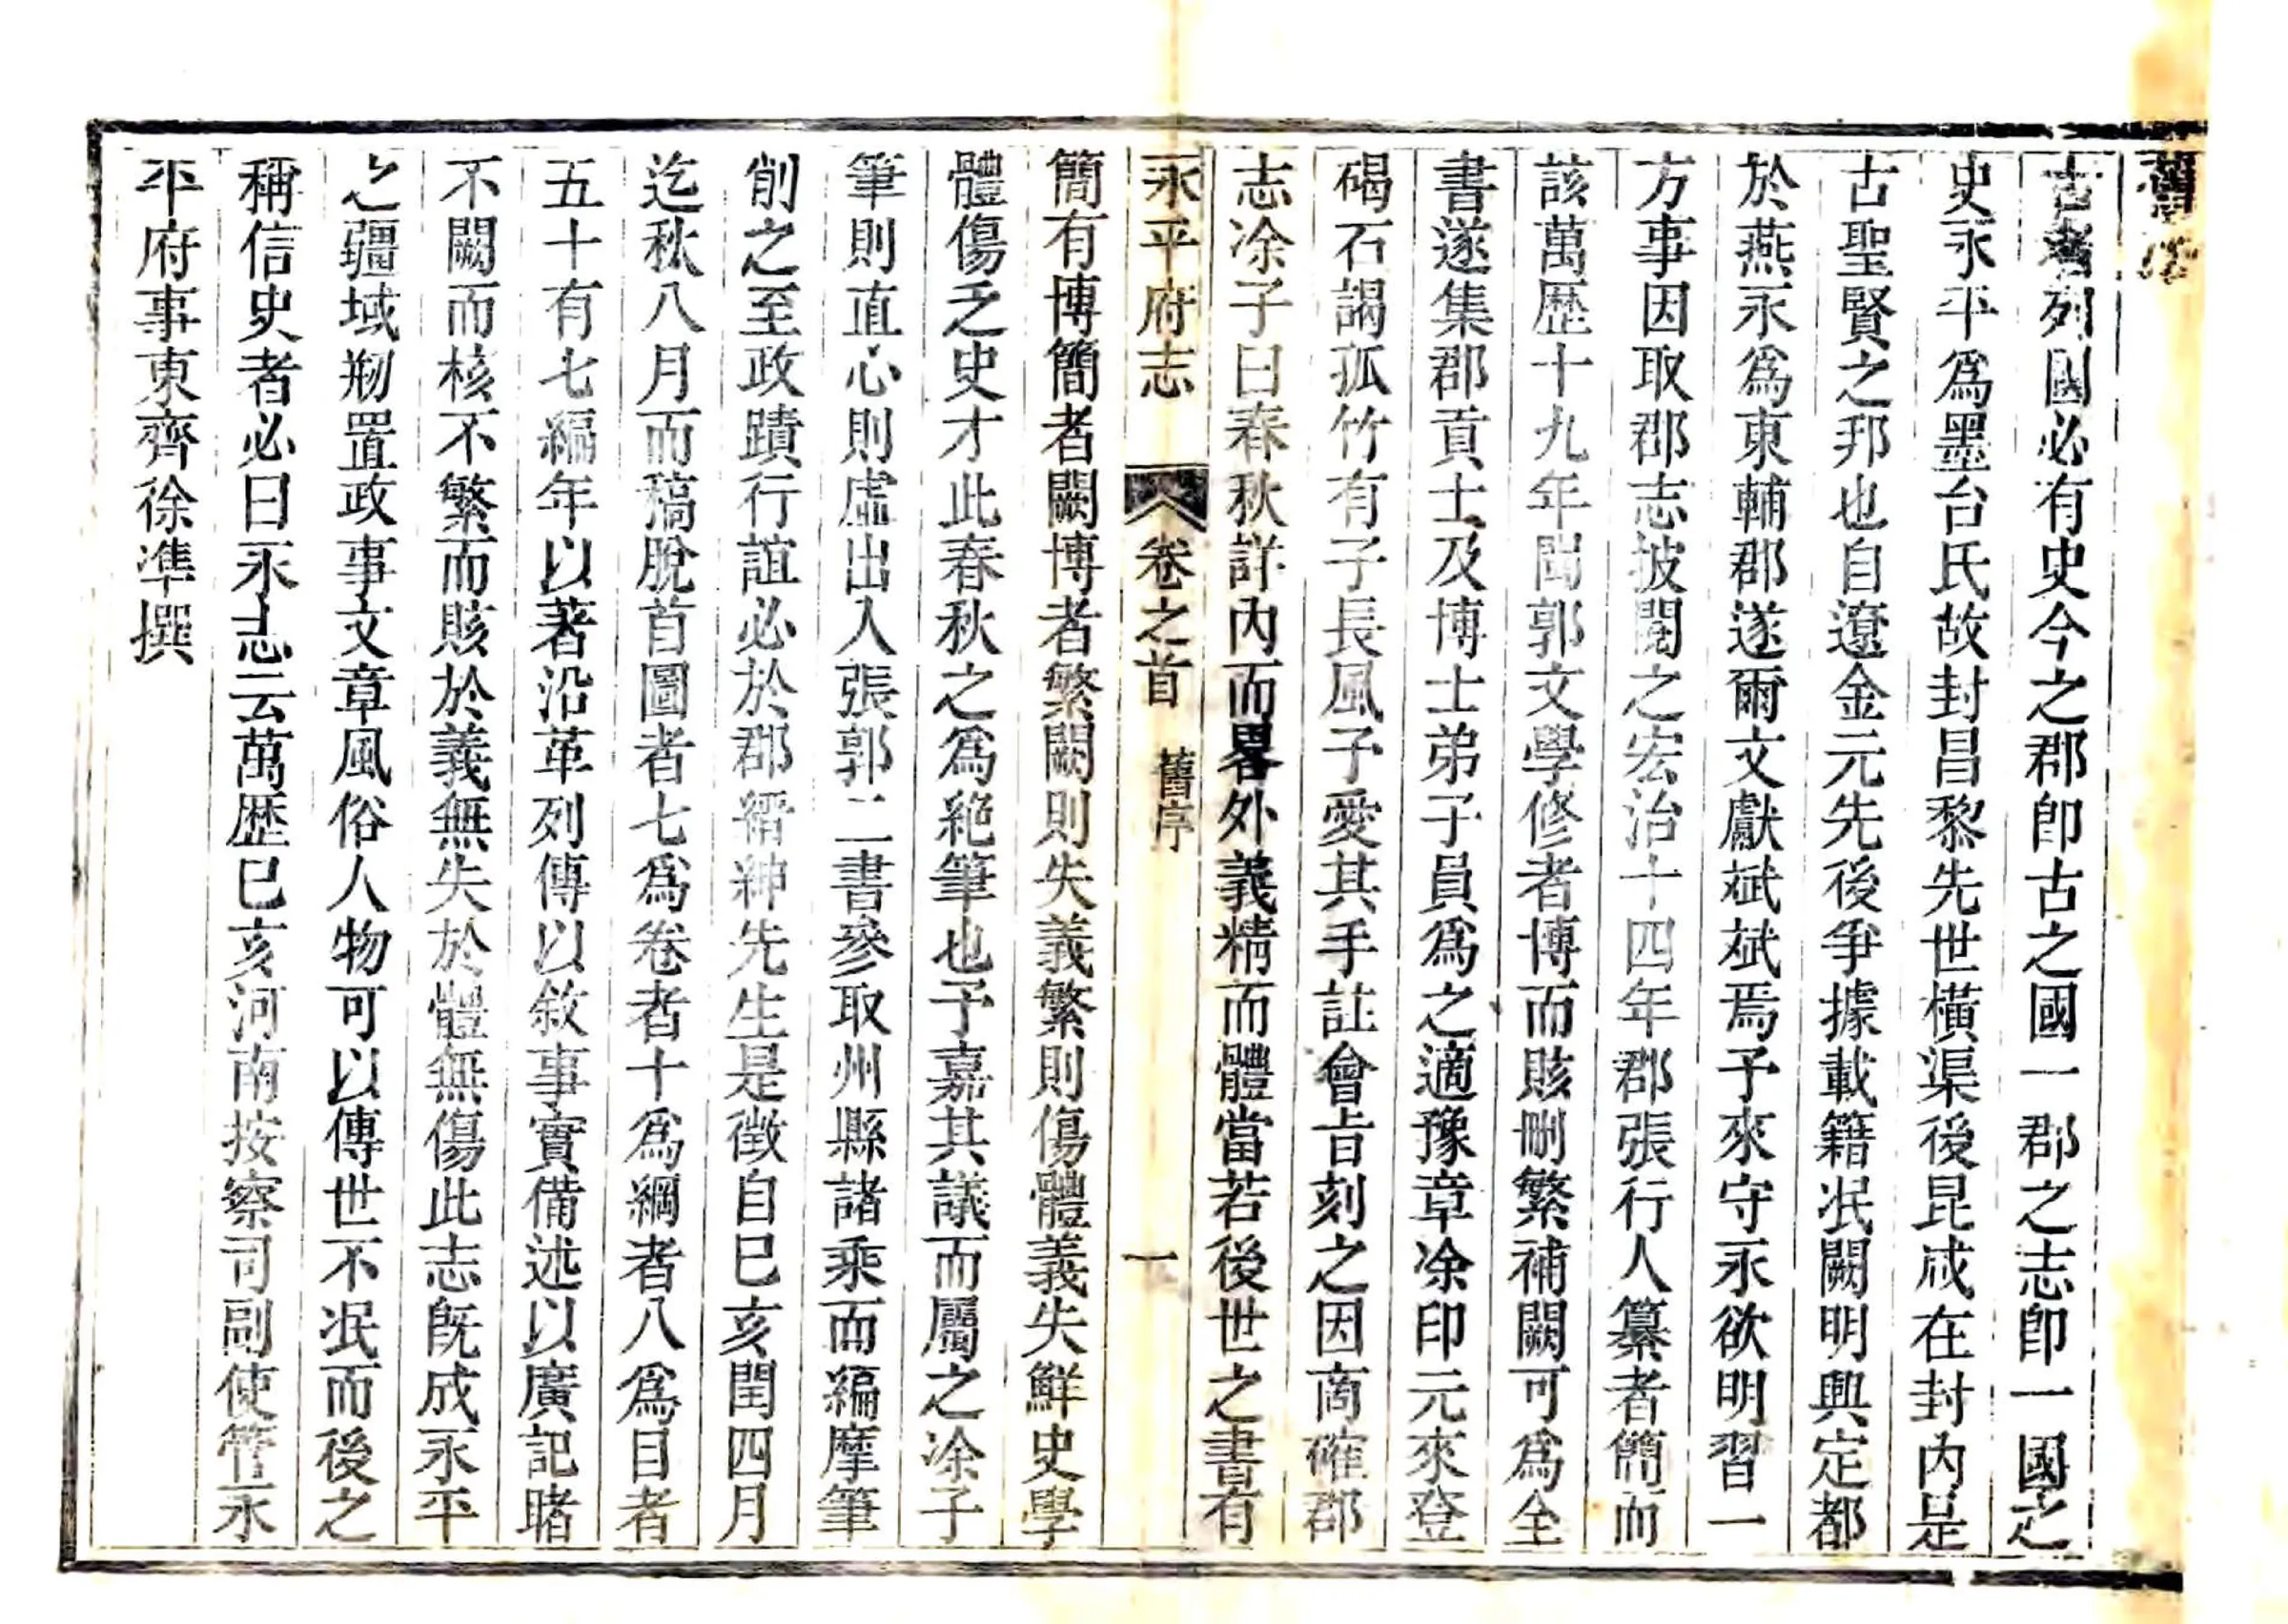 舊序
古者列國必有史今之郡卽古之國一郡之志卽一國之
史永平爲墨台氏故封昌黎先世橫渠後昆咸在封內是
古聖賢之邦也自遼金元先後爭據載籍泯闕明興定都
於燕永爲東輔郡遂爾文獻斌斌焉予來守永欲明習一
方事因取郡志披閱之宏治十四年郡張行人纂者簡而
該萬歷十九年閩郭文學修者博而賅刪繁補闕可爲全
書遂集郡貢士及博士弟子員爲之適豫章涂印元來登
碣石謁孤竹有子長風予愛其手註會㫖刻之因商確郡
志涂子曰春秋詳內而畧外義精而體當若後世之書有
永平府志 卷之首 舊序 一
簡有博簡者闕博者繁闕則失義繁則傷體義失鮮史學
體傷乏史才此春秋之爲絕筆也予嘉其議而屬之涂子
筆則直心則虛出入張郭二書參取州縣諸乘而編摩筆
削之至政蹟行誼必於郡縉紳先生是徵自巳亥閏四月
迄秋八月而稿脫首圖者七爲卷者十爲綱者八爲目者
五十有七編年以著沿革列傳以敘事實備述以廣記睹
不闕而核不繁而賅於義無失於體無傷此志旣成永平
之疆域剏置政事文章風俗人物可以傳世不泯而後之
稱信史者必曰永志云萬歷巳亥河南按察司副使管永
平府事東齊徐準撰